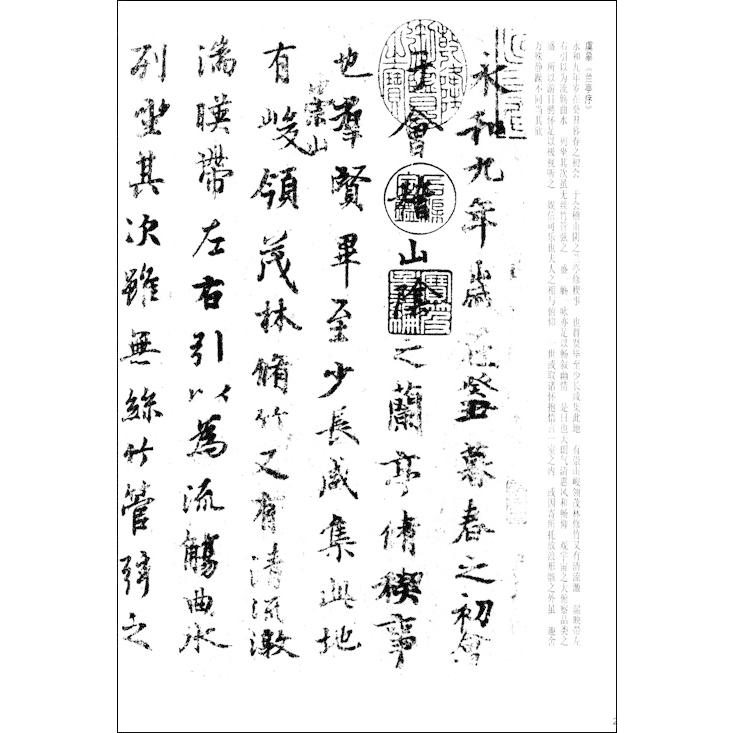 虞摹《兰亭序》
永和九年岁在癸丑暮春之初会 于会稽山阴之兰亭修禊事 也群贤毕至少长咸集此地 有崇山峻领茂林修竹又有清流激 湍映带左
右引以为流觞曲水 列坐其次虽无丝竹管弦之 盛一觞一咏亦足以畅叙幽情 是日也天朗气清惠风和畅仰 观宇宙之大俯察品类之
盛 所以游目骋怀足以极视听之 娱信可乐也夫人之相与俯仰 一世或取诸怀抱悟言一室之内 或因寄所托放浪形骸之外虽 趣舍
万殊静躁不同当其欣
永和九年歲在癸丑暮春之初會
于會稽山陰之蘭亭脩稧事
也羣賢畢至少長咸集此地
有崇山峻領茂林脩竹又有清流激
湍暎帶左右引以為流觴曲水
列坐其次雖無絲竹管弦之